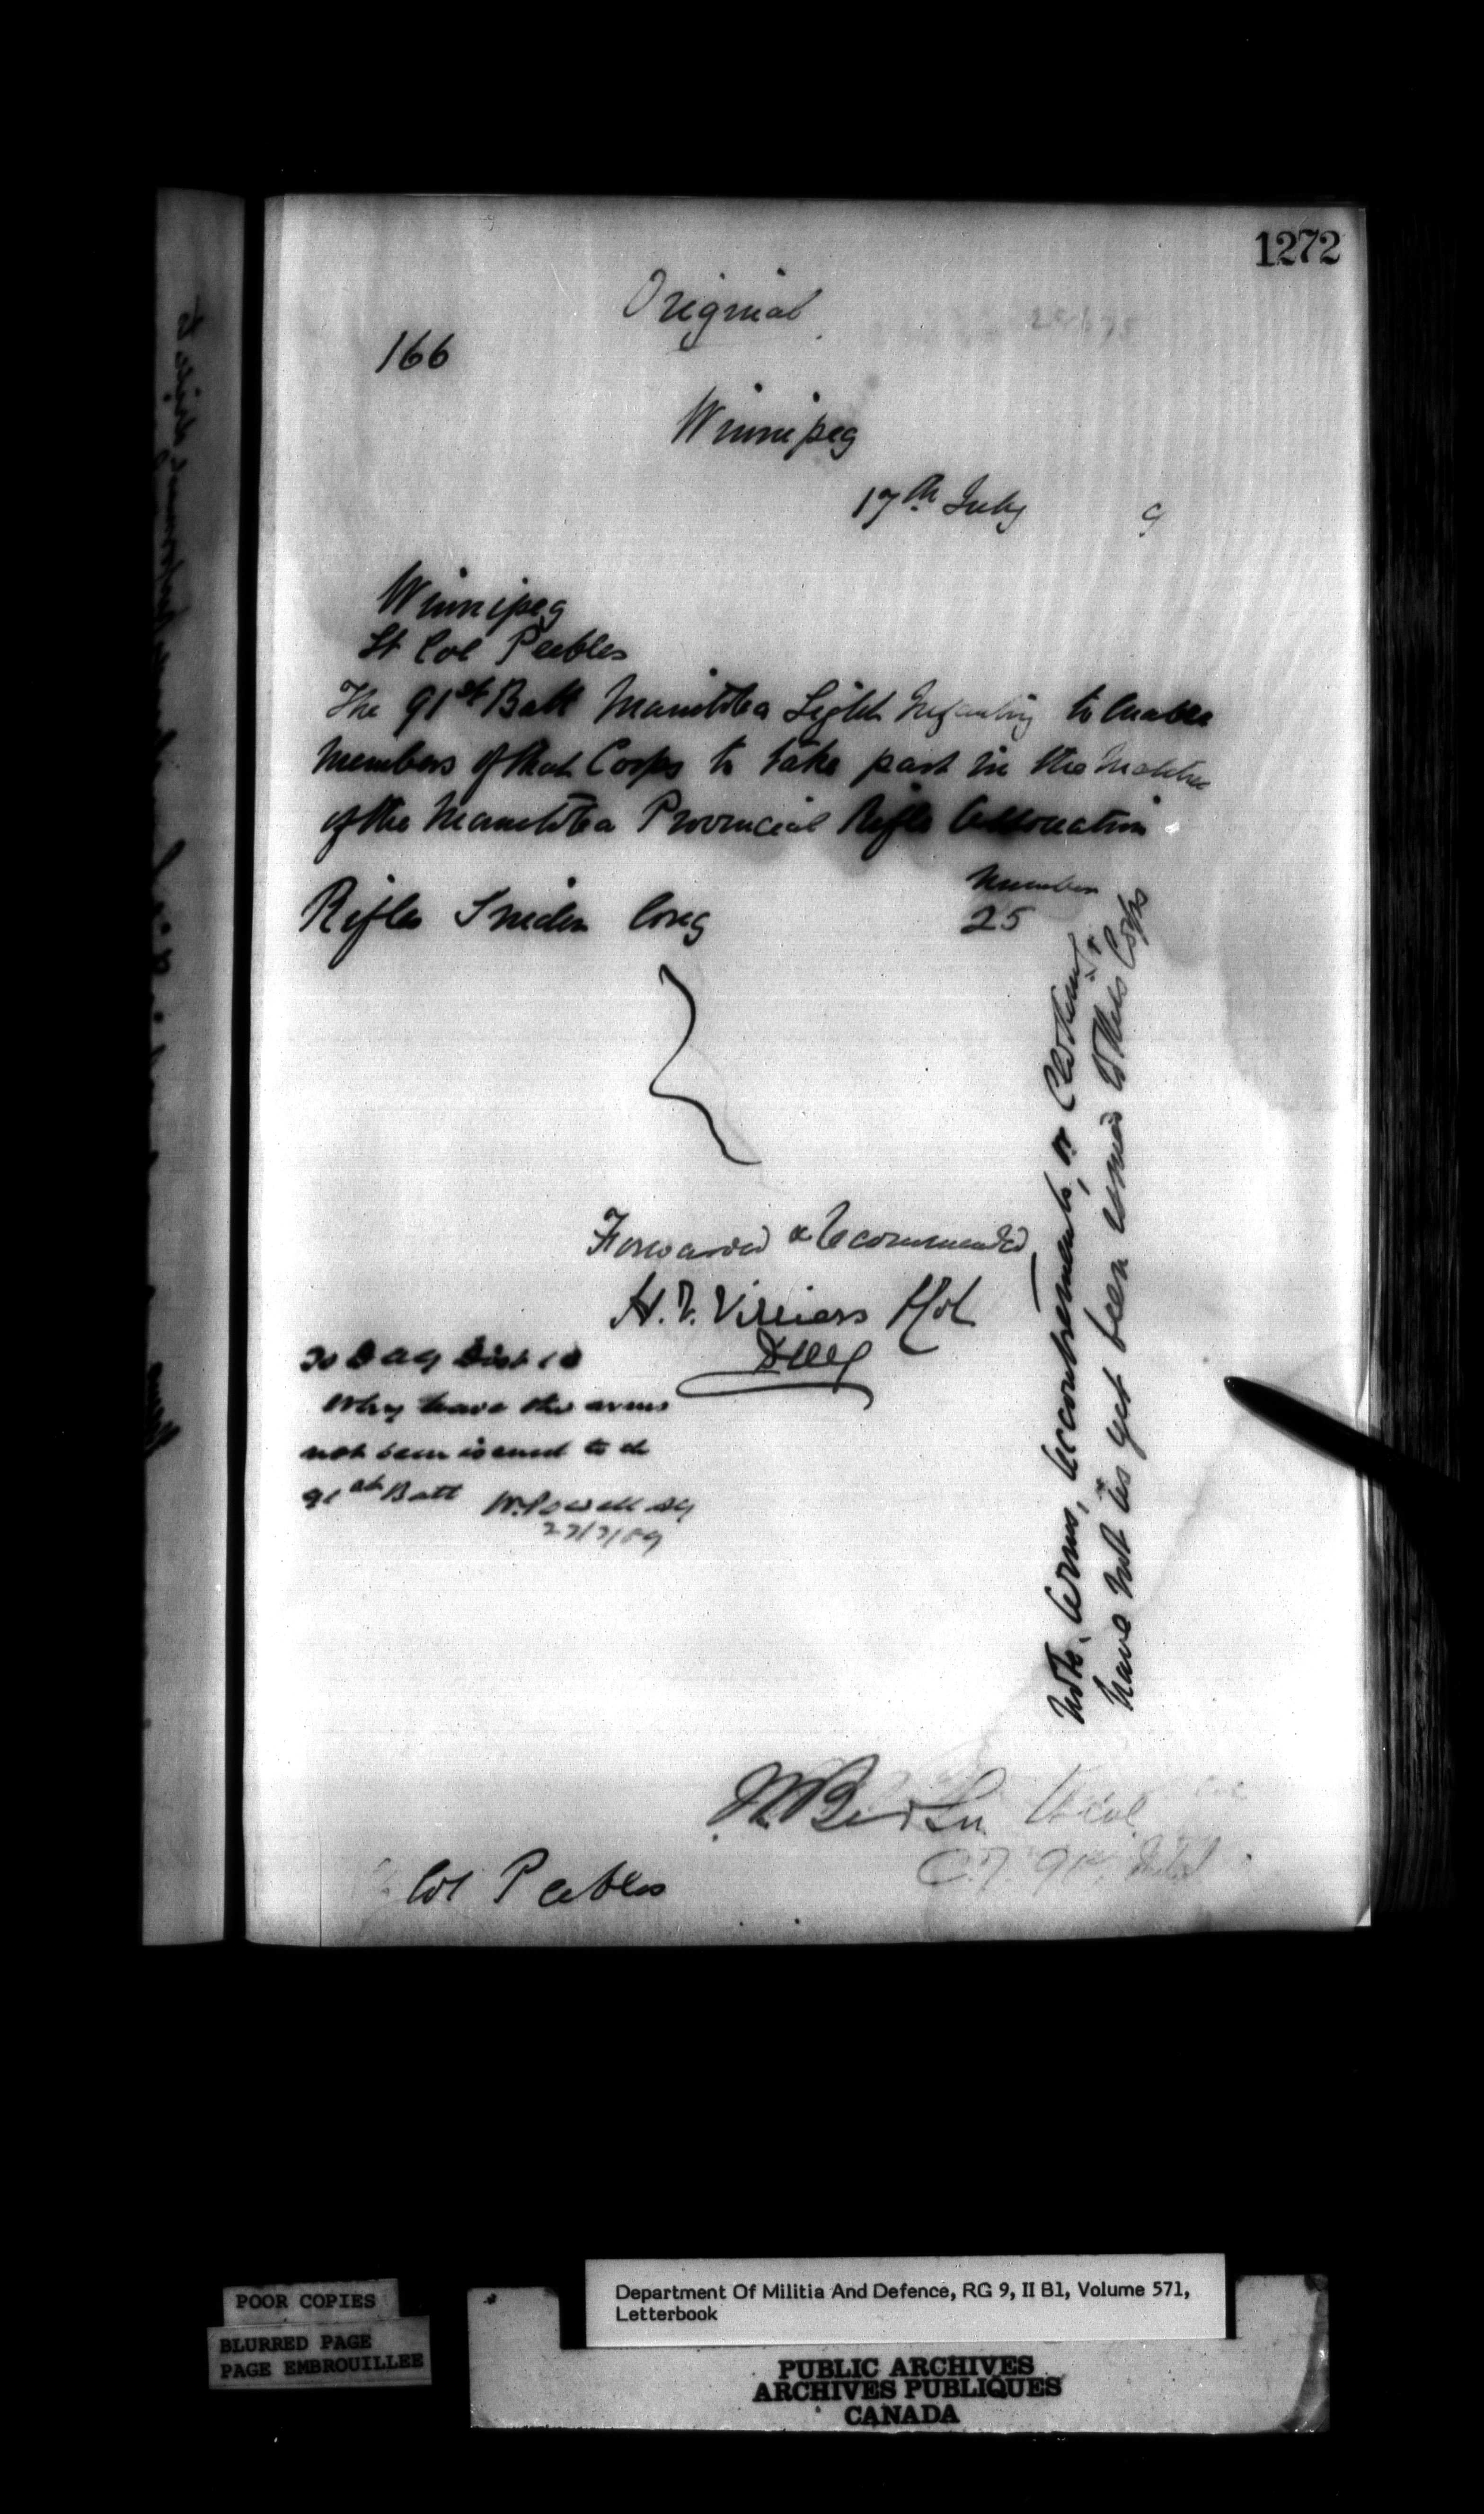 1272
Original
166
Winnipeg
17th July 9
Winnipeg
Lt Col Peebles
The 91st Batt Manitoba Light Infantry to enable
members of that Corps to take part in the Matches
of the Manitoba Provincial Rifle Association
Number
Rifles Snider long 25
Forwarded & Recommended
H. V. Villiers Lt Col
DAG
To DAG Dist 10
Why have the arms
not been issued to the
91st Batt W. Powell AG
23/7/89
Note. Arms, Accoutrements, or Clothing
have not as yet been issued to this Corps
Lt Col
91st
Col Peebles
POOR COPIES
BLURRED PAGE
PAGE EMBROUILLEE
Department Of Militia And Defence, RG 9, II B1, Volume 571,
Letterbook
PUBLIC ARCHIVES
ARCHIVES PUBLIQUES
CANADA